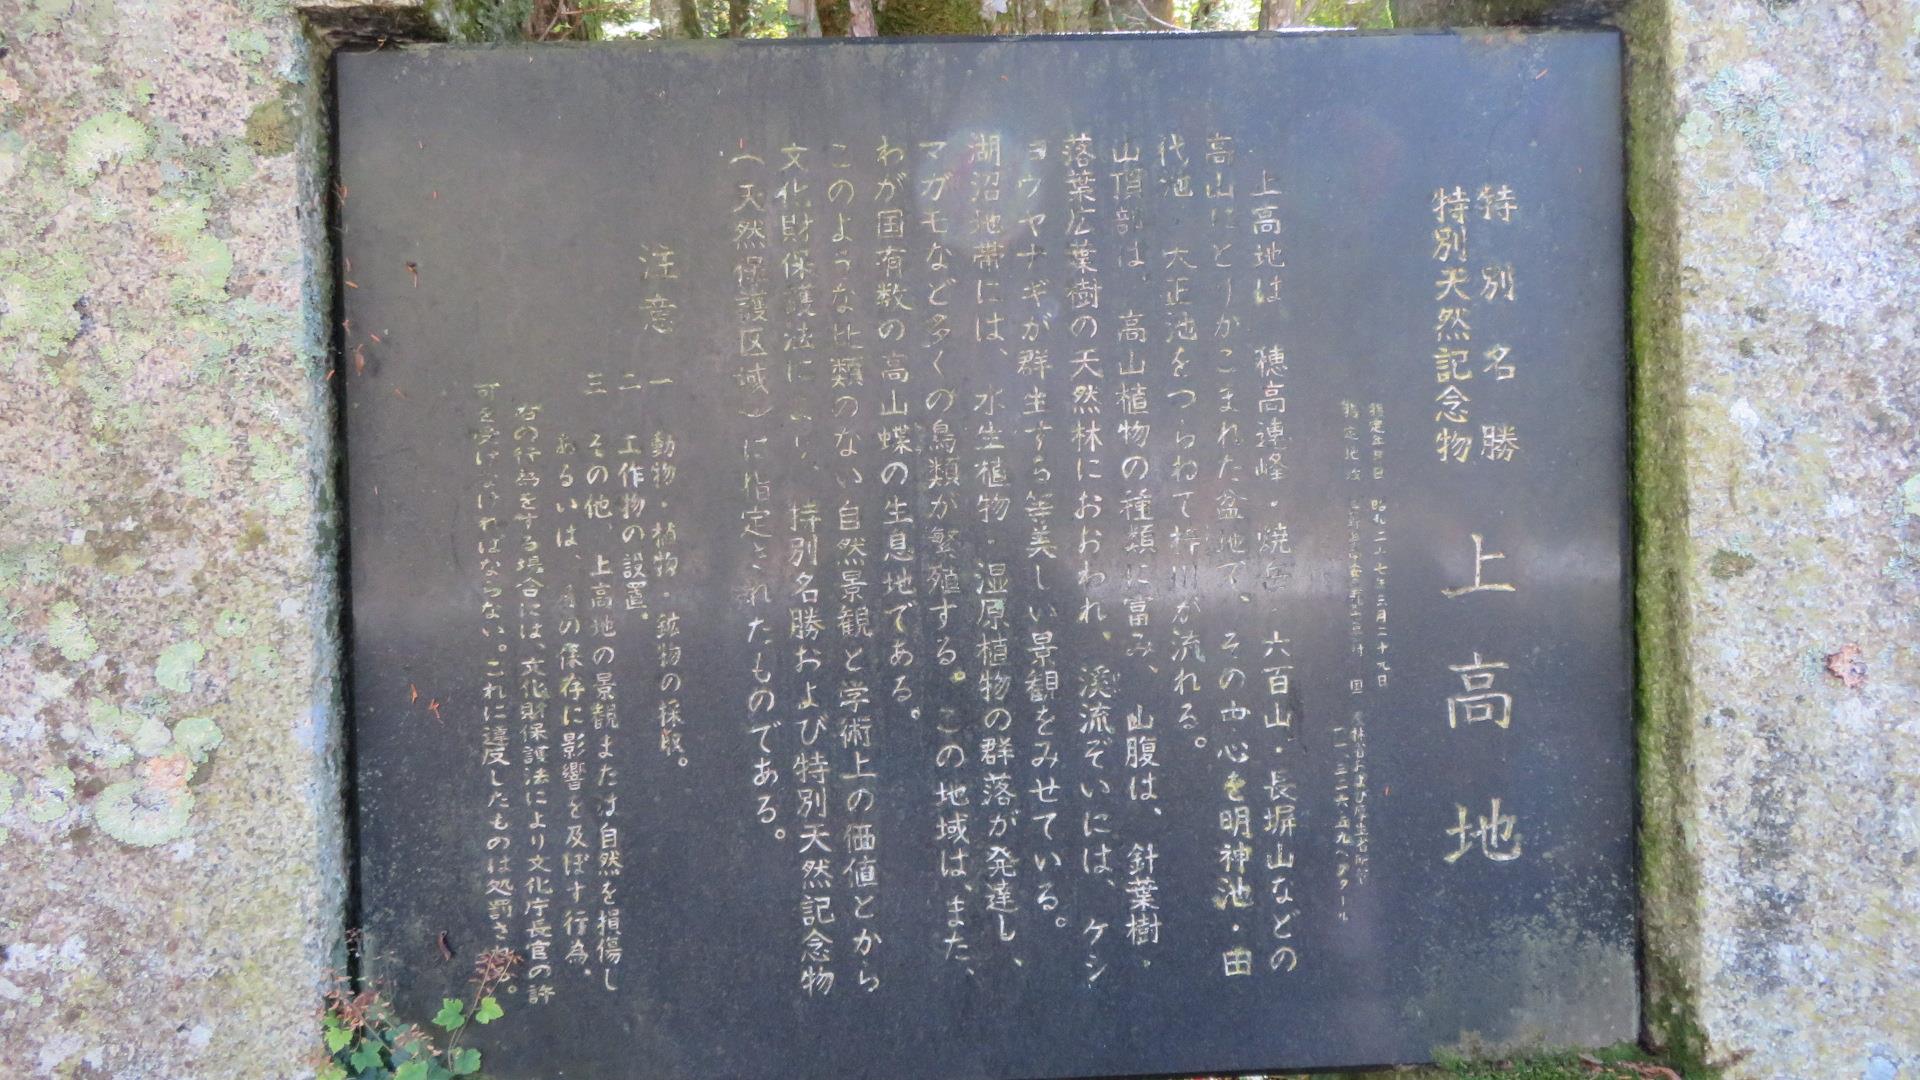 特別名勝
特別天然記念物
上高地
指定年月日 昭和二十七年三月二十九日
指定地域
上高地は、穂高連峰・焼岳・六百山・長塀山などの
高山にとりかこまれた盆地で、その中心を明神池・田
代池・大正池をつらねて梓川が流れる。
山頂部は、高山植物の種類に富み、山腹は、針葉樹・
落葉広葉樹の天然林におおわれ、渓流ぞいには、ケシ
ョウヤナギが群生する等美しい景観をみせている。
湖沼地帯には、水生植物・湿原植物の群落が発達し、
マガモなど多くの鳥類が繁殖する。この地域は、また、
わが国有数の高山蝶の生息地である。
このような比類のない自然景観と学術上の価値とから
文化財保護法により、特別名勝および特別天然記念物
(天然保護区域)に指定されたものである。
注意
一 動物・植物・鉱物の採取。
二 工作物の設置。
三 その他、上高地の景観または自然を損傷し
あるいは、の保存に影響を及ぼす行為。
右の行為をする場合には、文化財保護法により文化庁長官の許
可を受けなければならない。これに違反したものは処罰される。